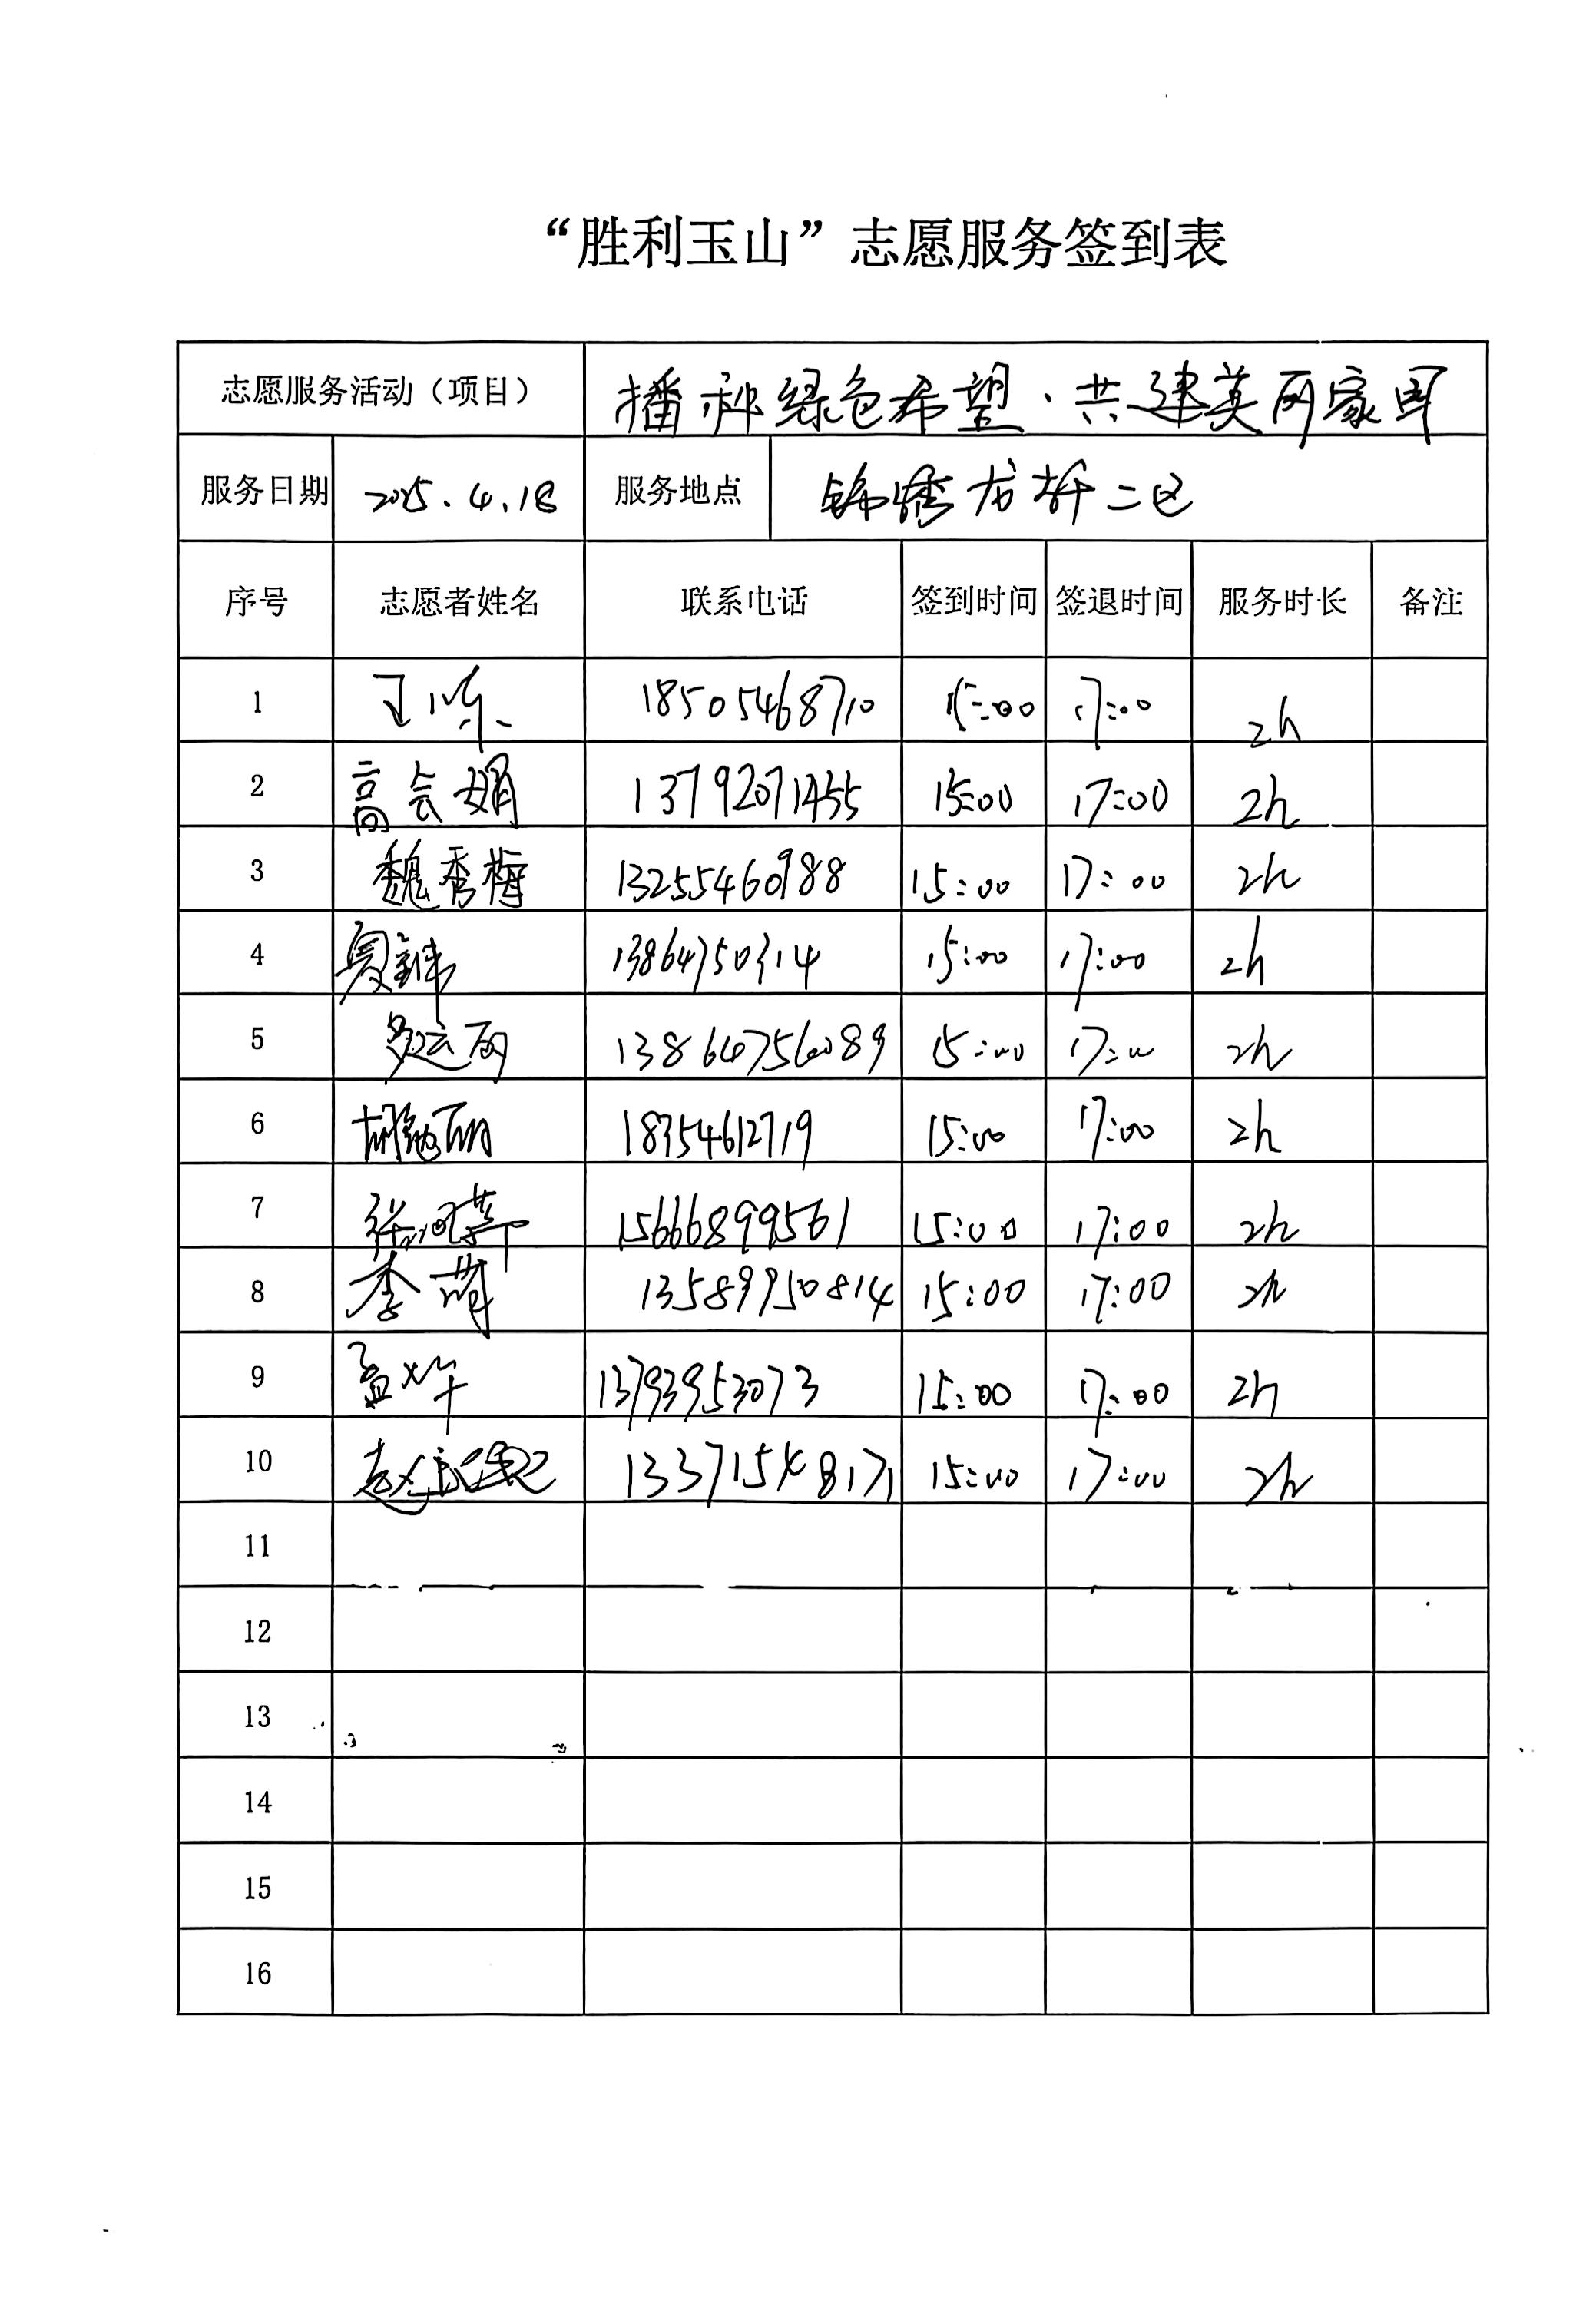 “胜利玉山”志愿服务签到表
志愿服务活动（项目） 播种绿色希望·共建美丽家园
服务日期 2025.4.18 服务地点 锦绣龙轩二区
序号 志愿者姓名 联系电话 签到时间 签退时间 服务时长 备注
1 18505468710 15:00 17:00 2h
2 高会娟 13792071455 15:00 17:00 2h
3 魏秀梅 13255460988 15:00 17:00 2h
4 13864750314 15:00 17:00 2h
5 13864756089 15:00 17:00 2h
6 18354612719 15:00 17:00 2h
7 15666899561 15:00 17:00 2h
8 李萌 13589950814 15:00 17:00 2h
9 13793953073 15:00 17:00 2h
10 15:00 17:00 2h
11
12
13
14
15
16